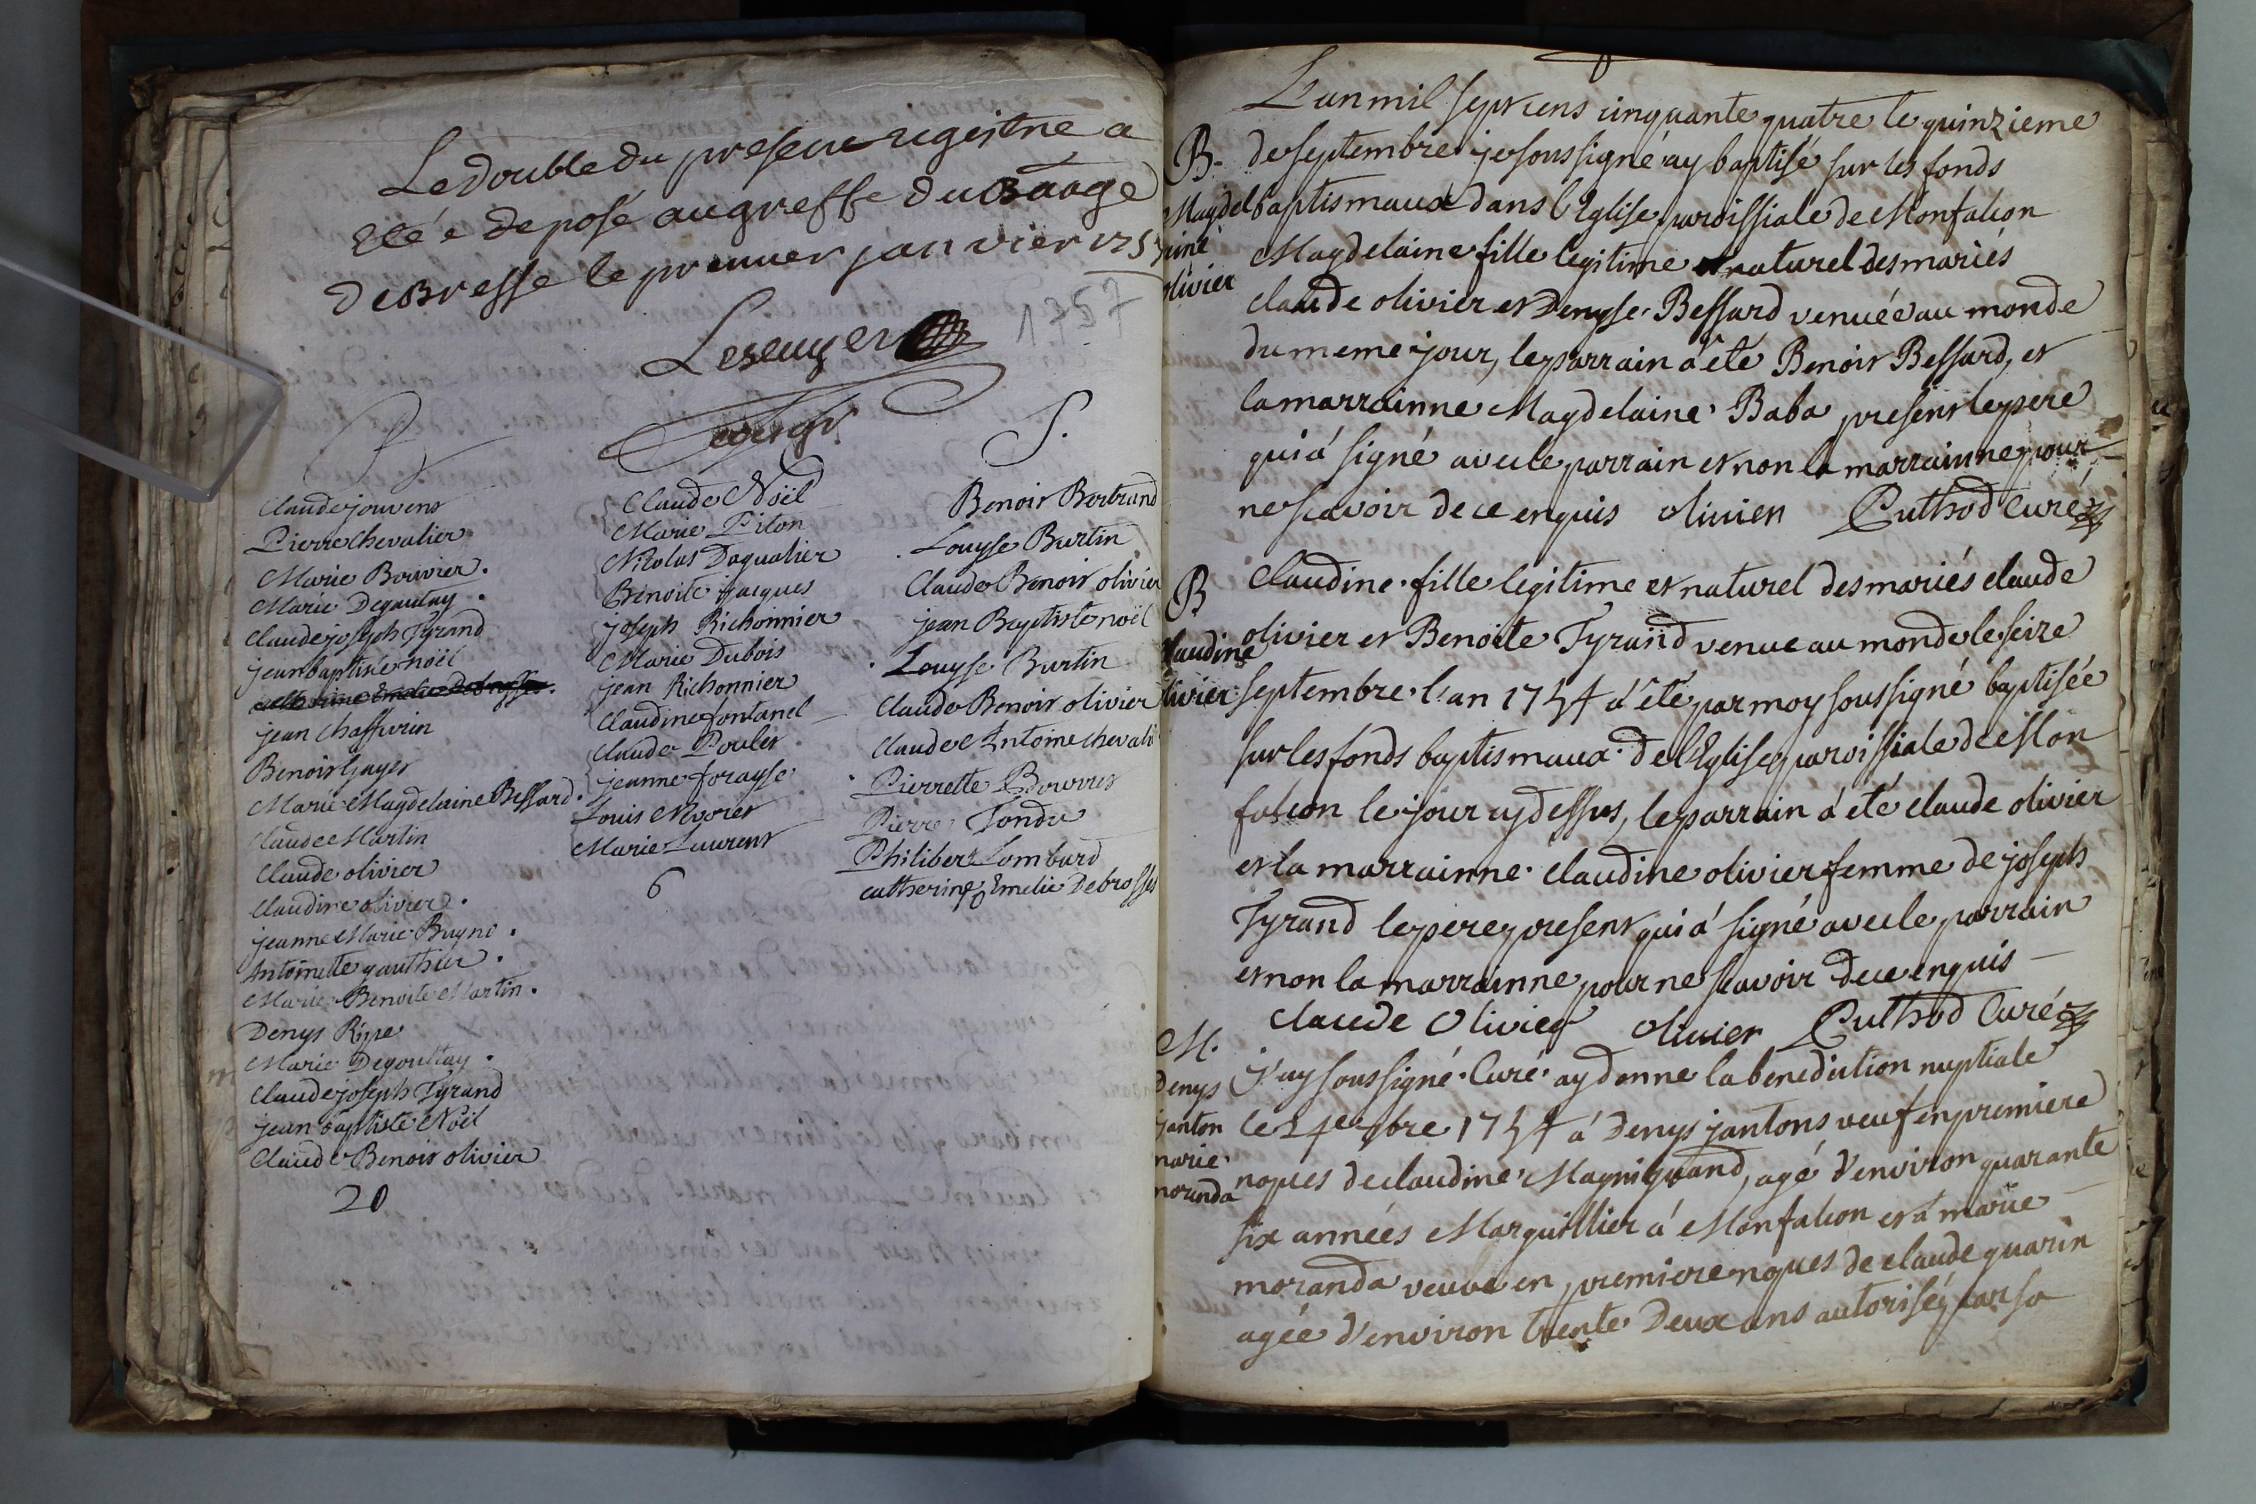 Le double du present registre a
été deposé au greffe du Baage
de Bresse le premier janvier 1757
1757
Claude jouvens
Pierre Chevalier
Marie Bouvier.
Marie Degoutay.
Claude joseph Tyrand
jean baptiste noël
jean Chaffurin
Benoit Gayet
Marie Magdelaine Bessard.
Claude Martin
Claude olivier
Claudine olivier.
jeanne Marie Buyno.
Antoinette gauthier.
Marie Benoite Martin.
Denys Rippe
Marie Degouttay.
Claude joseph Tyrand
jean baptiste Noël
Claude Benoit olivier
20
Claude Noël
Marie Pilon
Nicolas Daqualier
Benoite jacques
joseph Richonnier
Marie Dubois
jean Richonnier
Claudine fontanel
Claude Poulet
jeanne forayse
Louis Nvoret
Marie Laurent
6
S.
Benoit Bertrand
Louyse Burtin
Claude Benoit olivier
jean Baptiste noël
Louyse Burtin
Claude Benoit olivier
Claude Antoine chevali
Pierrette Bouvret
Pierre Tondu
Philibert Lombard
catherine Emelie Debrosses
L'an mil sept cens cinquante quatre le quinzieme
B. de septembre je soussigné ay baptisé sur les fonds
Magdel baptismaux dans l'Eglise paroissiale de Monfalcon
aine Magdelaine fille legitime et naturel des mariés
olivier claude olivier et Denyse Bessard venuée au monde
du meme jour, le parrain á eté Benoit Bessard, et
la marrainne Magdelaine Baba present le pere
qui á signé avec le parrain et non la marrainne pour
ne scavoir de ce enquis olivier Cuthod Curé
B Claudine fille legitime et naturel des mariés claude
claudine olivier et Benoite Tyrand venue au monde le seize
olivier septembre l'an 1754 á été par moy soussigné baptisée
sur les fonds baptismaux de l'Eglise paroissiale de Mon
falcon le jour cy dessus, le parrain á été claude olivier
et la marrainne claudine olivier femme de joseph
Tyrand le pere present qui á signé avec le parrain
et non la marrainne pour ne scavoir de ce enquis
claude olivier olivier Cuthod Curé
M. j'ay soussigné Curé ay donne la benediction nuptiale
Denys
janton 1754 á Denys jantons veuf en premiere
marie nopces de claudine Magniquand, agé d'environ quarante
moranda six années Marguillier á Monfalcon et á marie
moranda veuve en premiere nopces de claude guarin
agée d'environ trente deux ans autorisée par sa